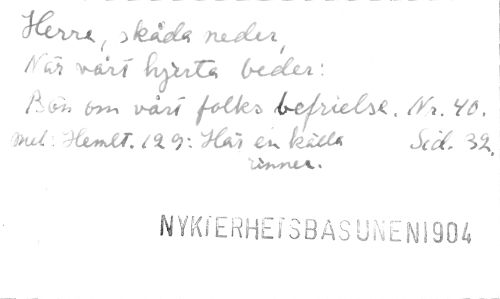 Herre, skåda neder,
När vårt hjerta beder:
Bön om vårt folks befrielse. Nr. 40.
Mel: Hemlt. 129: Här en källa Sid. 32.
rinner.
NYKTERHETSBASUNEN1904